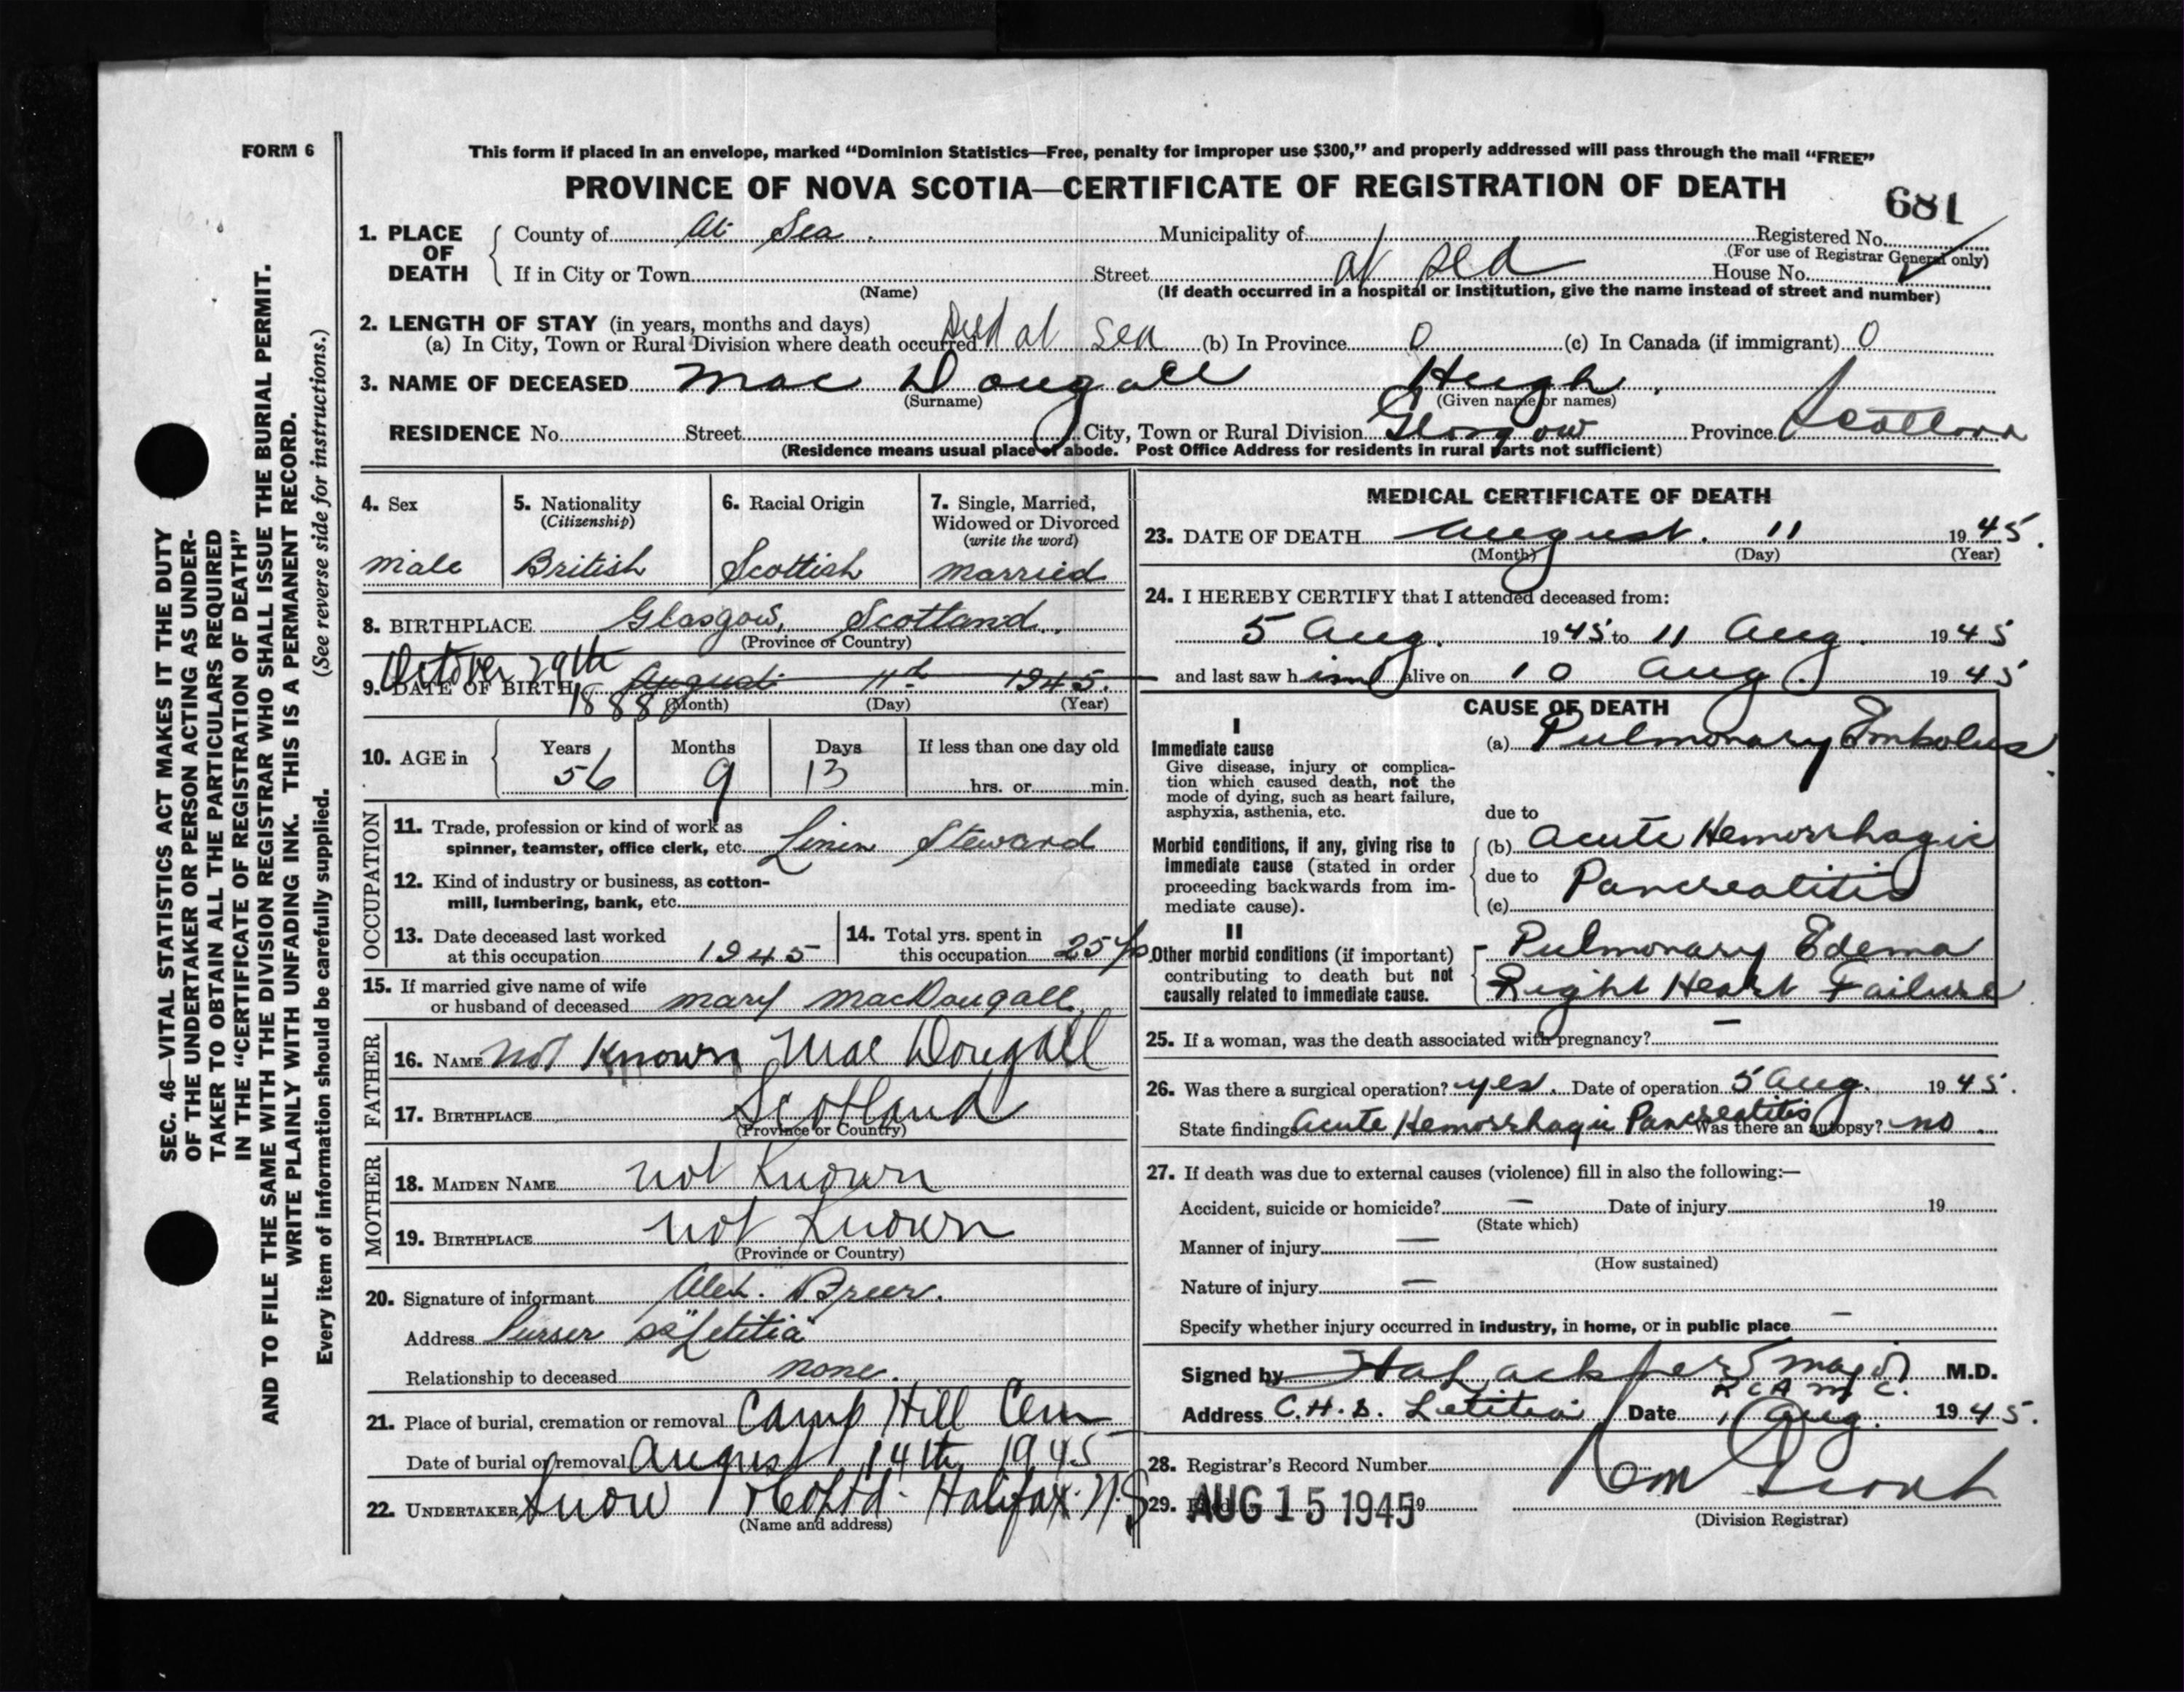 FORM 6
This form if placed in an envelope, marked “Dominion Statistics—Free, penalty for improper use $300,” and properly addressed will pass through the mail “FREE”
PROVINCE OF NOVA SCOTIA—CERTIFICATE OF REGISTRATION OF DEATH
681
1. PLACE OF DEATH
County of At Sea. Municipality of Registered No.
(For use of Registrar General only)
If in City or Town Street at sea House No.
(Name) (If death occurred in a hospital or institution, give the name instead of street and number)
2. LENGTH OF STAY (in years, months and days)
(a) In City, Town or Rural Division where death occurred Died at sea (b) In Province 0 (c) In Canada (if immigrant) 0
3. NAME OF DECEASED MacDougall Hugh.
(Surname) (Given name or names)
RESIDENCE No. Street City, Town or Rural Division Glasgow Province Scotland
(Residence means usual place of abode. Post Office Address for residents in rural parts not sufficient)
SEC. 46—VITAL STATISTICS ACT MAKES IT THE DUTY
OF THE UNDERTAKER OR PERSON ACTING AS UNDER-
TAKER TO OBTAIN ALL THE PARTICULARS REQUIRED
IN THE “CERTIFICATE OF REGISTRATION OF DEATH”
AND TO FILE THE SAME WITH THE DIVISION REGISTRAR WHO SHALL ISSUE THE BURIAL PERMIT.
WRITE PLAINLY WITH UNFADING INK. THIS IS A PERMANENT RECORD.
Every item of information should be carefully supplied. (See reverse side for instructions.)
4. Sex
male
5. Nationality
(Citizenship)
British
6. Racial Origin
Scottish
7. Single, Married,
Widowed or Divorced
(write the word)
married
8. BIRTHPLACE Glasgow, Scotland.
(Province or Country)
October 29th
9. DATE OF BIRTH August 11th 1945.
1888 (Month) (Day) (Year)
10. AGE in Years Months Days If less than one day old
56 9 13 hrs. or min.
OCCUPATION
11. Trade, profession or kind of work as
spinner, teamster, office clerk, etc. Linin Steward
12. Kind of industry or business, as cotton-
mill, lumbering, bank, etc.
13. Date deceased last worked
at this occupation 1945
14. Total yrs. spent in
this occupation 25
15. If married give name of wife
or husband of deceased mary macDougall
FATHER
16. NAME not known MacDougall
17. BIRTHPLACE Scotland
(Province or Country)
MOTHER
18. MAIDEN NAME not known
19. BIRTHPLACE not known
(Province or Country)
20. Signature of informant Alex.
Address Purser ss "Letitia"
Relationship to deceased none.
21. Place of burial, cremation or removal Camp Hill Cem
Date of burial or removal August 14th, 1945
22. UNDERTAKER Snow & Co Ltd - Halifax N.S
(Name and address)
MEDICAL CERTIFICATE OF DEATH
23. DATE OF DEATH August. 11 1945.
(Month) (Day) (Year)
24. I HEREBY CERTIFY that I attended deceased from:
5 Aug. 1945 to 11 Aug. 1945
and last saw him alive on 10 Aug. 1945
CAUSE OF DEATH
I
Immediate cause
Give disease, injury or complica-
tion which caused death, not the
mode of dying, such as heart failure,
asphyxia, asthenia, etc.
(a) Pulmonary Embolus.
due to
Morbid conditions, if any, giving rise to
immediate cause (stated in order
proceeding backwards from im-
mediate cause).
(b) Acute Hemorrhagic
due to Pancreatitis
(c)
II
Other morbid conditions (if important)
contributing to death but not
causally related to immediate cause.
- Pulmonary Edema
Right Heart Failure
25. If a woman, was the death associated with pregnancy? —
26. Was there a surgical operation? yes. Date of operation 5 Aug. 1945.
State findings Acute Hemorrhagic Pancreatitis Was there an autopsy? no.
27. If death was due to external causes (violence) fill in also the following:—
Accident, suicide or homicide? — Date of injury 19
(State which)
Manner of injury —
(How sustained)
Nature of injury —
Specify whether injury occurred in industry, in home, or in public place —
Signed by major M.D.
R.C.A.M.C.
Address C.H.S. Letitia Date Aug. 1945.
28. Registrar's Record Number
29. Filed AUG 15 1945 19
(Division Registrar)